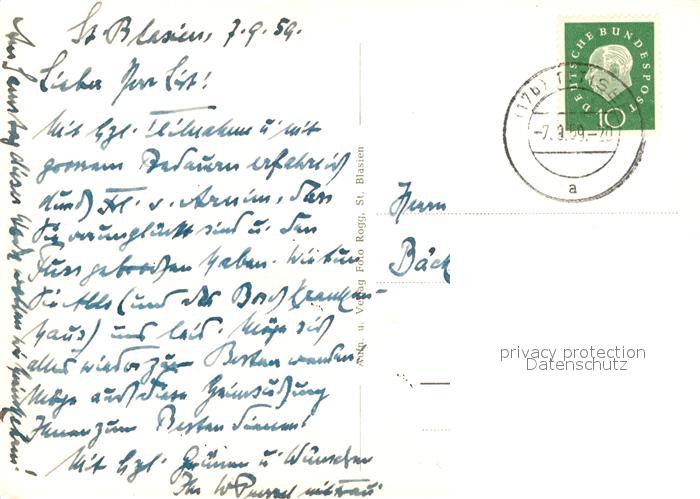 St. Blasien, 7.9.59.
Lieber Herr List!
Mit hzl. Teilnahme u. mit
grossem Bedauern erfahre ich
durch Frl. v. Arnim, dass
Sie verunglückt sind u. den
Fuss gebrochen haben. Wie tun
Sie Alle (und das Bosch Kranken-
haus) uns leid. Möge sich
alles wieder zum Besten wenden.
Möge auch diese Heimsuchung
Ihnen zum Besten dienen!
Mit hzl. Grüssen u. Wünschen
Ihr W mit Frau
Am Samstag dieser Woche wollen wir heimkehren!
Aufn. u. Verlag Foto Rogg, St. Blasien
DEUTSCHE BUNDESPOST
10
(17b)
-7.9.59.-20
a
Herrn
Bäck
privacy protection
Datenschutz